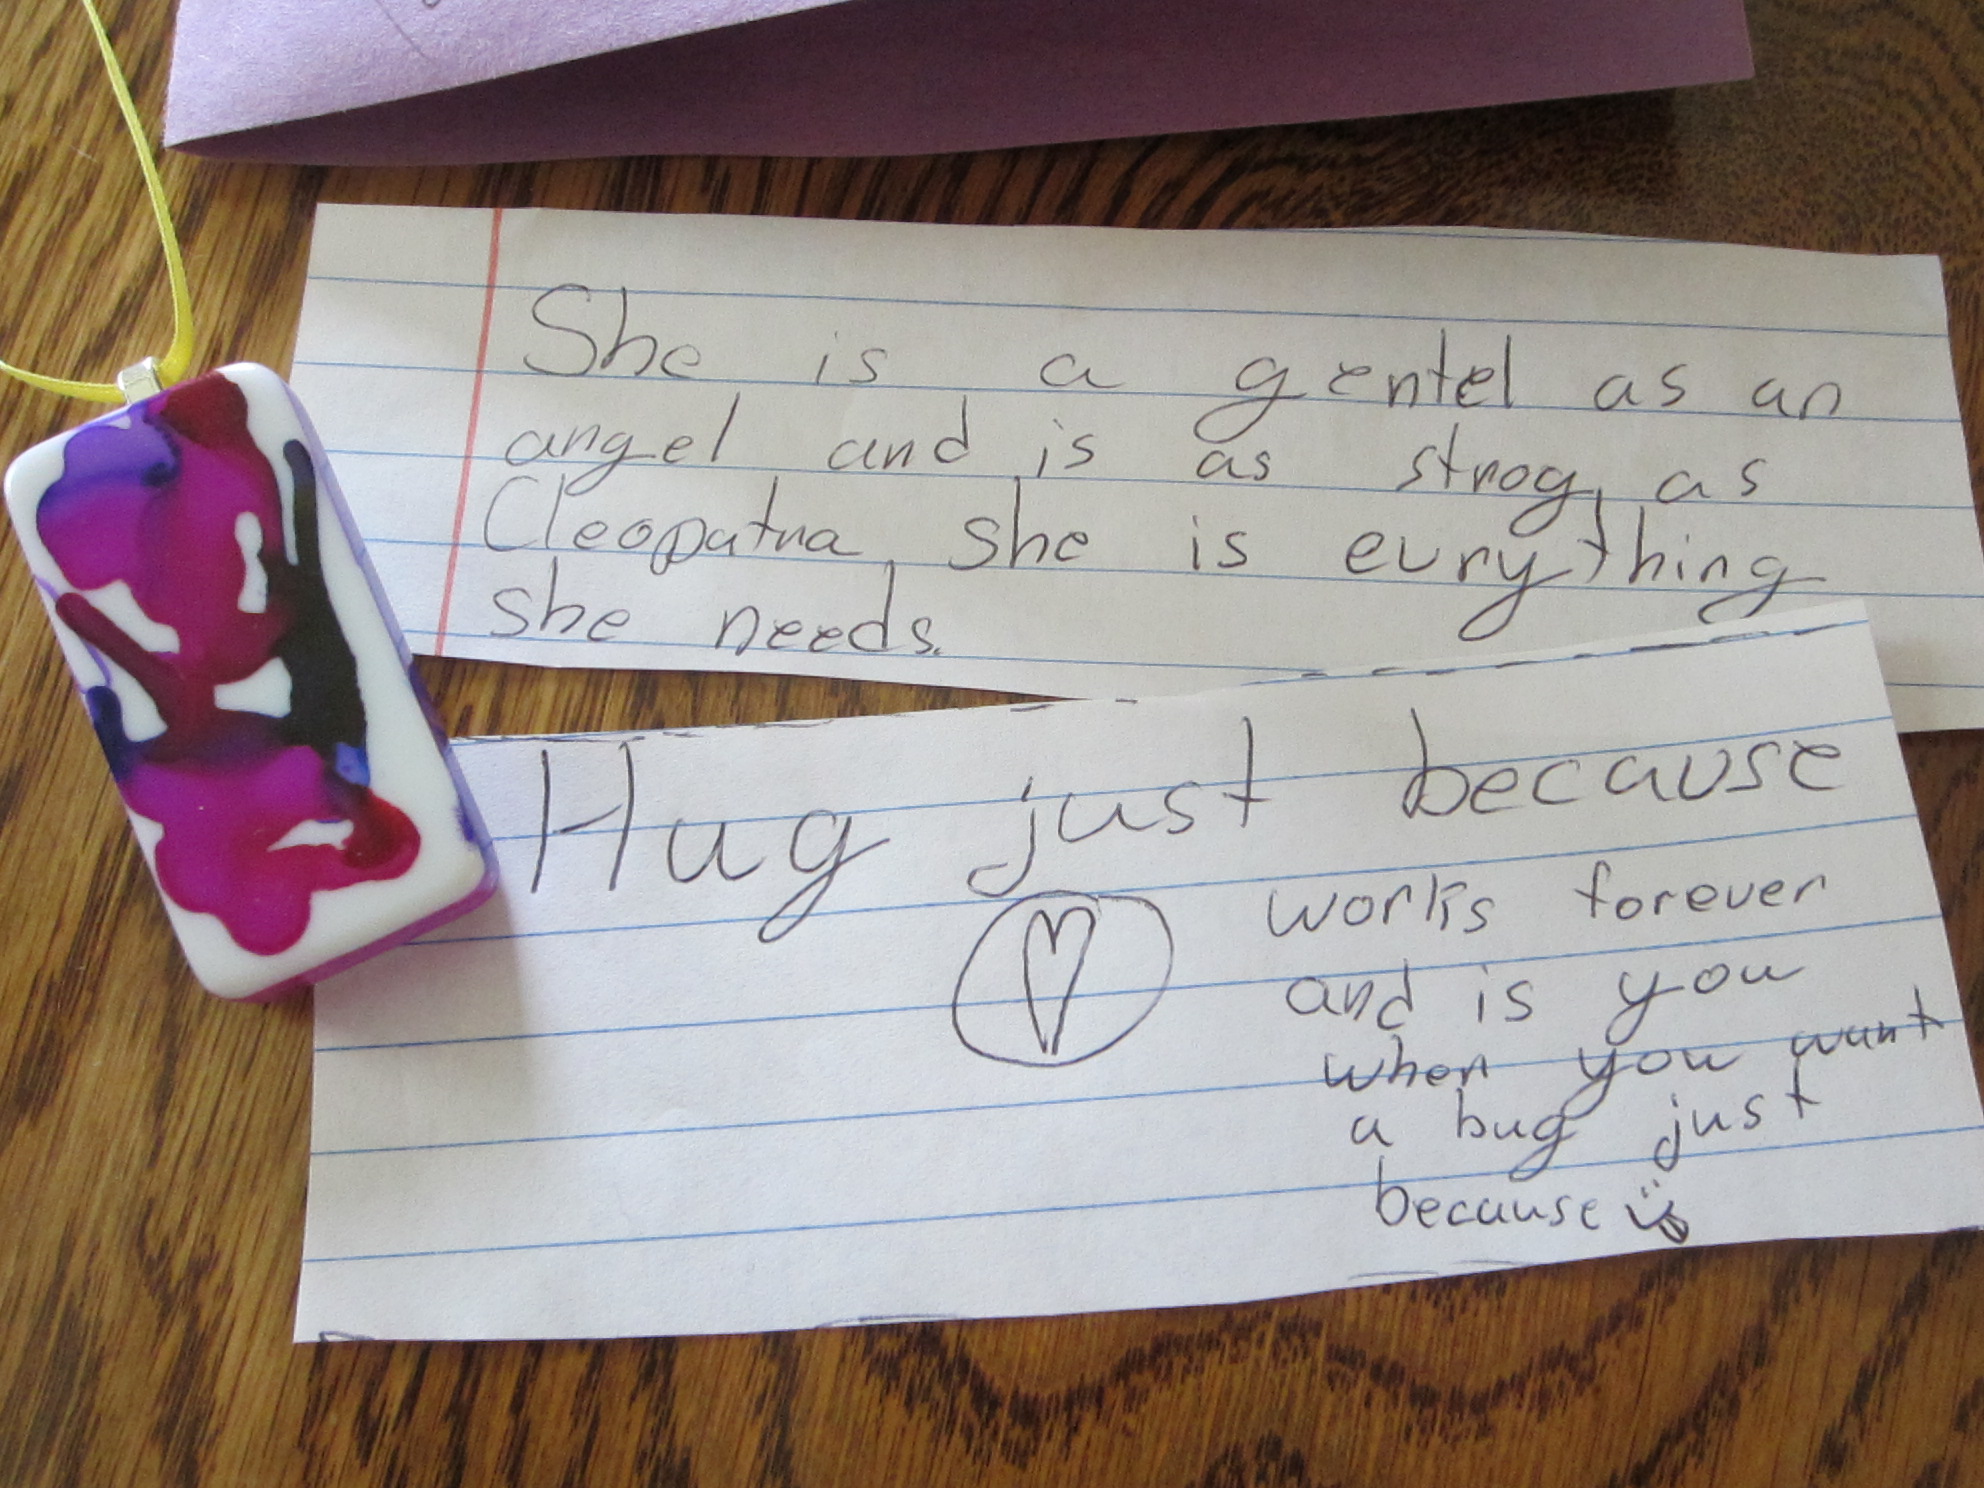 She is a gentel as an
angel and is as strog as
Cleopatra, she is eury thing
she needs.
Hug just because
works forever
and is you
when you want
a bug just
because